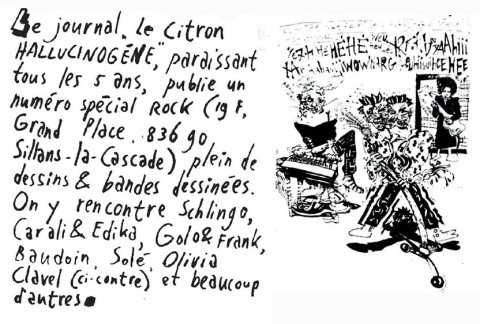 Le journal "Le Citron
HALLUCINOGÈNE", paraissant
tous les 5 ans, publie un
numéro spécial ROCK (19 F,
Grand Place. 83690
Sillans-la-Cascade) plein de
dessins & bandes dessinées.
On y rencontre Schlingo,
Carali & Edika, Golo & Frank,
Baudoin, Solé, Olivia
Clavel (ci-contre) et beaucoup
d'autres.